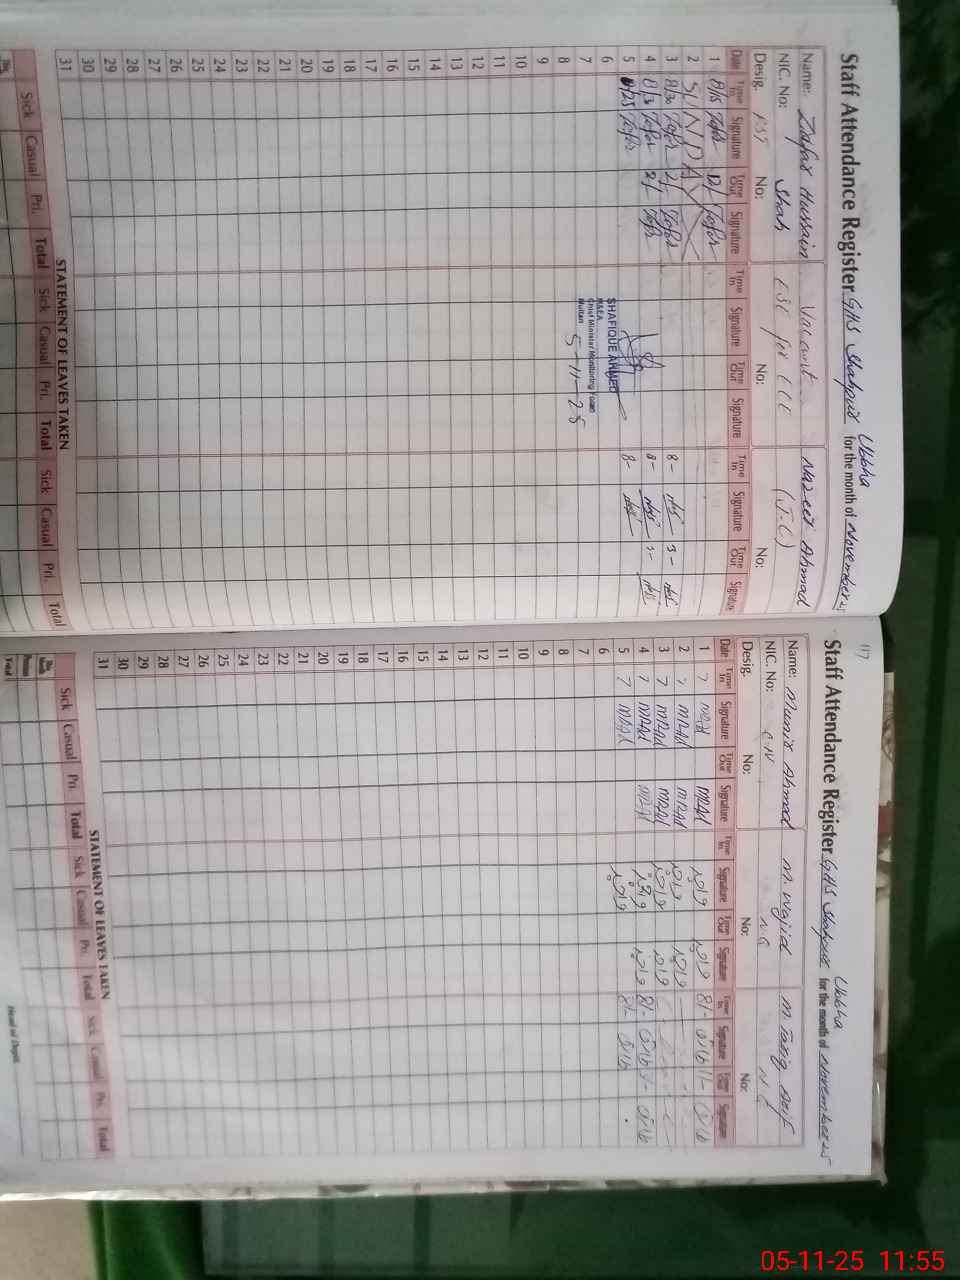 Staff Attendance Register GHS Shahpur Ubbha for the month of November 25
Name: Zafar Hussain Shah Vacant Nazeer Ahmad
NIC. No: (J.C)
Desig. PST No: No: No:
Date Time In Signature Time Out Signature Time In Signature Time Out Signature Time In Signature Time Out Signature
1 8/15 Zafar 12/ Zafar
2 SUNDAY
3 8/30 Zafar 2/ Zafar 8- 3-
4 8/3 Zafar 2/ Zafar 8-
5 8/25 Zafar 8-
6
7
8
9
10
11
12
13
14
15
16
17
18
19
20
21
22
23
24
25
26
27
28
29
30
31
SHAFIQUE AHMED
M&EA
Chief Minister Monitoring Force
Multan
5-11-25
STATEMENT OF LEAVES TAKEN
Sick Casual Pri. Total Sick Casual Pri. Total Sick Casual Pri. Total
117
Staff Attendance Register GHS Shahpur Ubbha for the month of November 25
Name: Munir Ahmad M. Wajid M. Tariq Asif
NIC. No:
Desig. No: No: No:
Date Time In Signature Time Out Signature Time In Signature Time Out Signature Time In Signature Time Out Signature
1 7 8/-
2 7
3 7
4 7 8/-
5 7 8/-
6
7
8
9
10
11
12
13
14
15
16
17
18
19
20
21
22
23
24
25
26
27
28
29
30
31
STATEMENT OF LEAVES TAKEN
Sick Casual Pri. Total Sick Casual Pri. Total Sick Casual Pri. Total
Total
Head of Deptt:
05-11-25 11:55